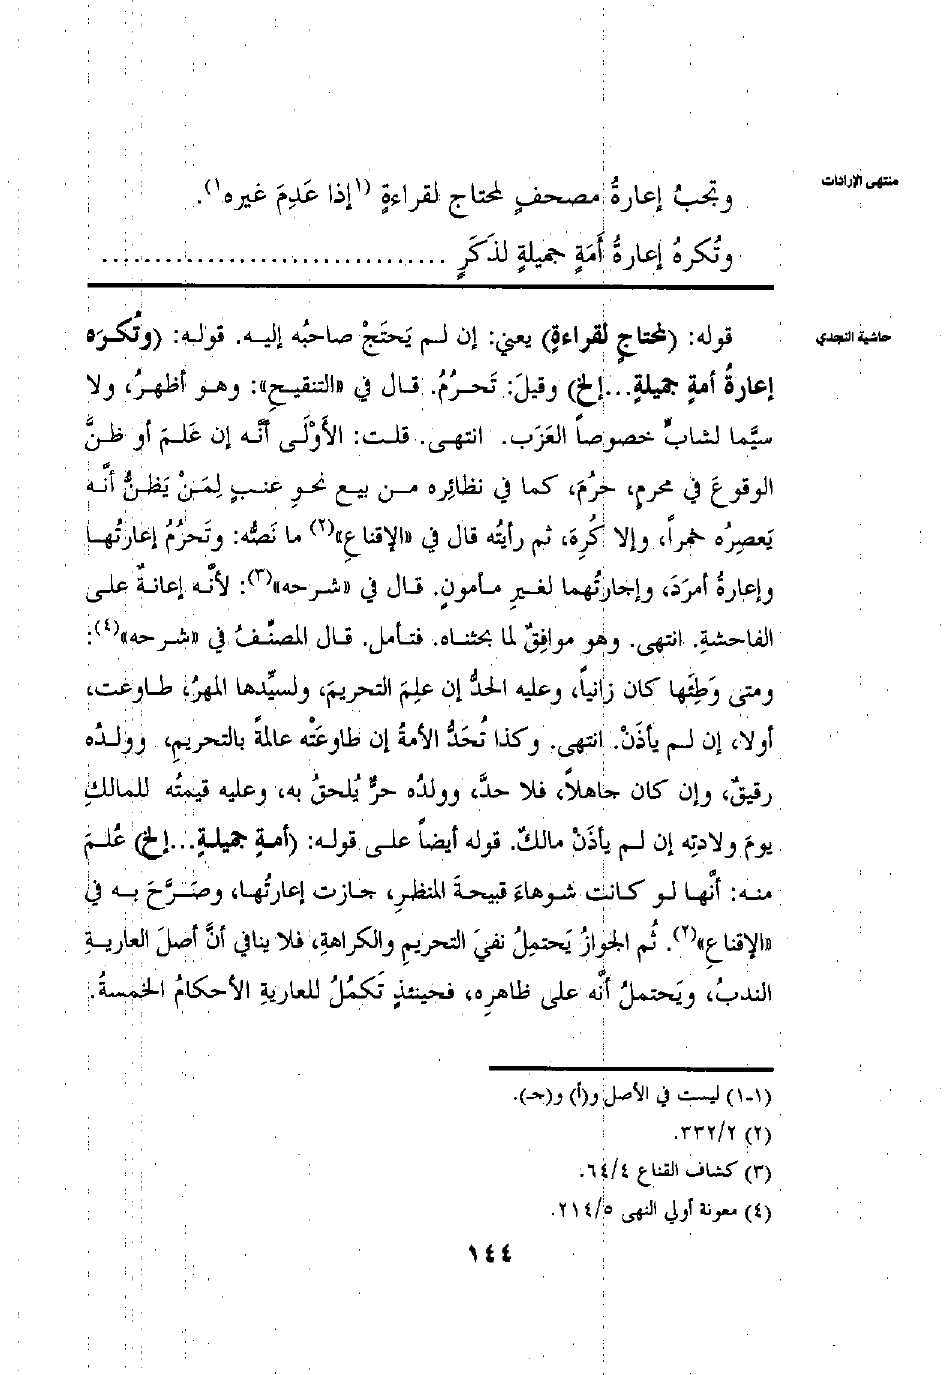 منتهى الإرادات
وتجبُ إعارةُ مصحفٍ لمحتاج لقراءةٍ (١إذا عَدِمَ غيره١).
وتُكرهُ إعارةُ أَمَةٍ جميلةٍ لذَكَرٍ ................................
حاشية النجدي
قوله: (لمحتاجٍ لقراءةٍ) يعني: إن لم يَحتَجْ صاحبُه إليه. قوله: (وتُكرَه
إعارةُ أمةٍ جميلةٍ...إلخ) وقيلَ: تَحرُمُ. قال في «التنقيحِ»: وهو أظهرُ، ولا
سيَّما لشابٍّ خصوصاً العَزَب. انتهى. قلت: الأَوْلَى أنَّه إن عَلمَ أو ظنَّ
الوقوعَ في محرمٍ، حَرُمَ، كما في نظائِره من بيع نحوِ عنبٍ لِمَنْ يَظنُّ أنَّه
يَعصِرُه خمراً، وإلا كُرِهَ، ثم رأيتُه قال في «الإقناعِ»(٢) ما نَصُّه: وتَحرُمُ إعارتُها
وإعارةُ أمرَدَ، وإجارتُهما لغيرِ مأمونٍ. قال في «شرحه»(٣): لأنَّه إعانةٌ على
الفاحشةِ. انتهى. وهو موافِقٌ لما بحثناه. فتأمل. قال المصنِّفُ في «شرحه»(٤):
ومتى وَطِئَها كان زانياً، وعليه الحدُّ إن علِمَ التحريمَ، ولسيِّدها المهرُ، طاوعَت،
أولا، إن لم يأذَنْ. انتهى. وكذا تُحَدُّ الأمةُ إن طاوعَتْه عالمةً بالتحريمِ، وولدُه
رقيقٌ، وإن كان جاهلاً، فلا حدَّ، وولدُه حرٌّ يُلحقُ به، وعليه قيمتُه للمالكِ
يومَ ولادتِه إن لم يأذَنْ مالكٌ. قوله أيضاً على قوله: (أمةٍ جميلةٍ...إلخ) عُلمَ
منه: أنَّها لو كانت شوهاءَ قبيحةَ المنظرِ، جازت إعارتُها، وصَرَّحَ به في
«الإقناعِ»(٢). ثُم الجوازُ يَحتمِلُ نفيَ التحريمِ والكراهةِ، فلا ينافي أنَّ أصلَ العاريةِ
الندبُ، ويَحتملُ أنَّه على ظاهرِه، فحينئذٍ تَكمُلُ للعاريةِ الأحكامُ الخمسةُ.
(١-١) ليست في الأصل و(أ) و(ج).
(٢) ٣٣٢/٢.
(٣) كشاف القناع ٦٤/٤.
(٤) معونة أولي النهى ٢١٤/٥.
١٤٤